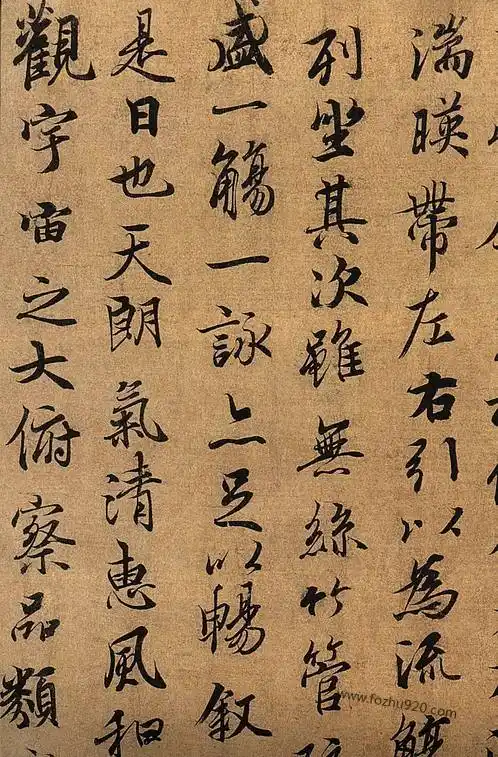 湍暎帶左右引以為流觴
列坐其次雖無絲竹管
盛一觴一詠亦足以暢叙
是日也天朗氣清惠風和
觀宇宙之大俯察品類
www.fozhu920.com